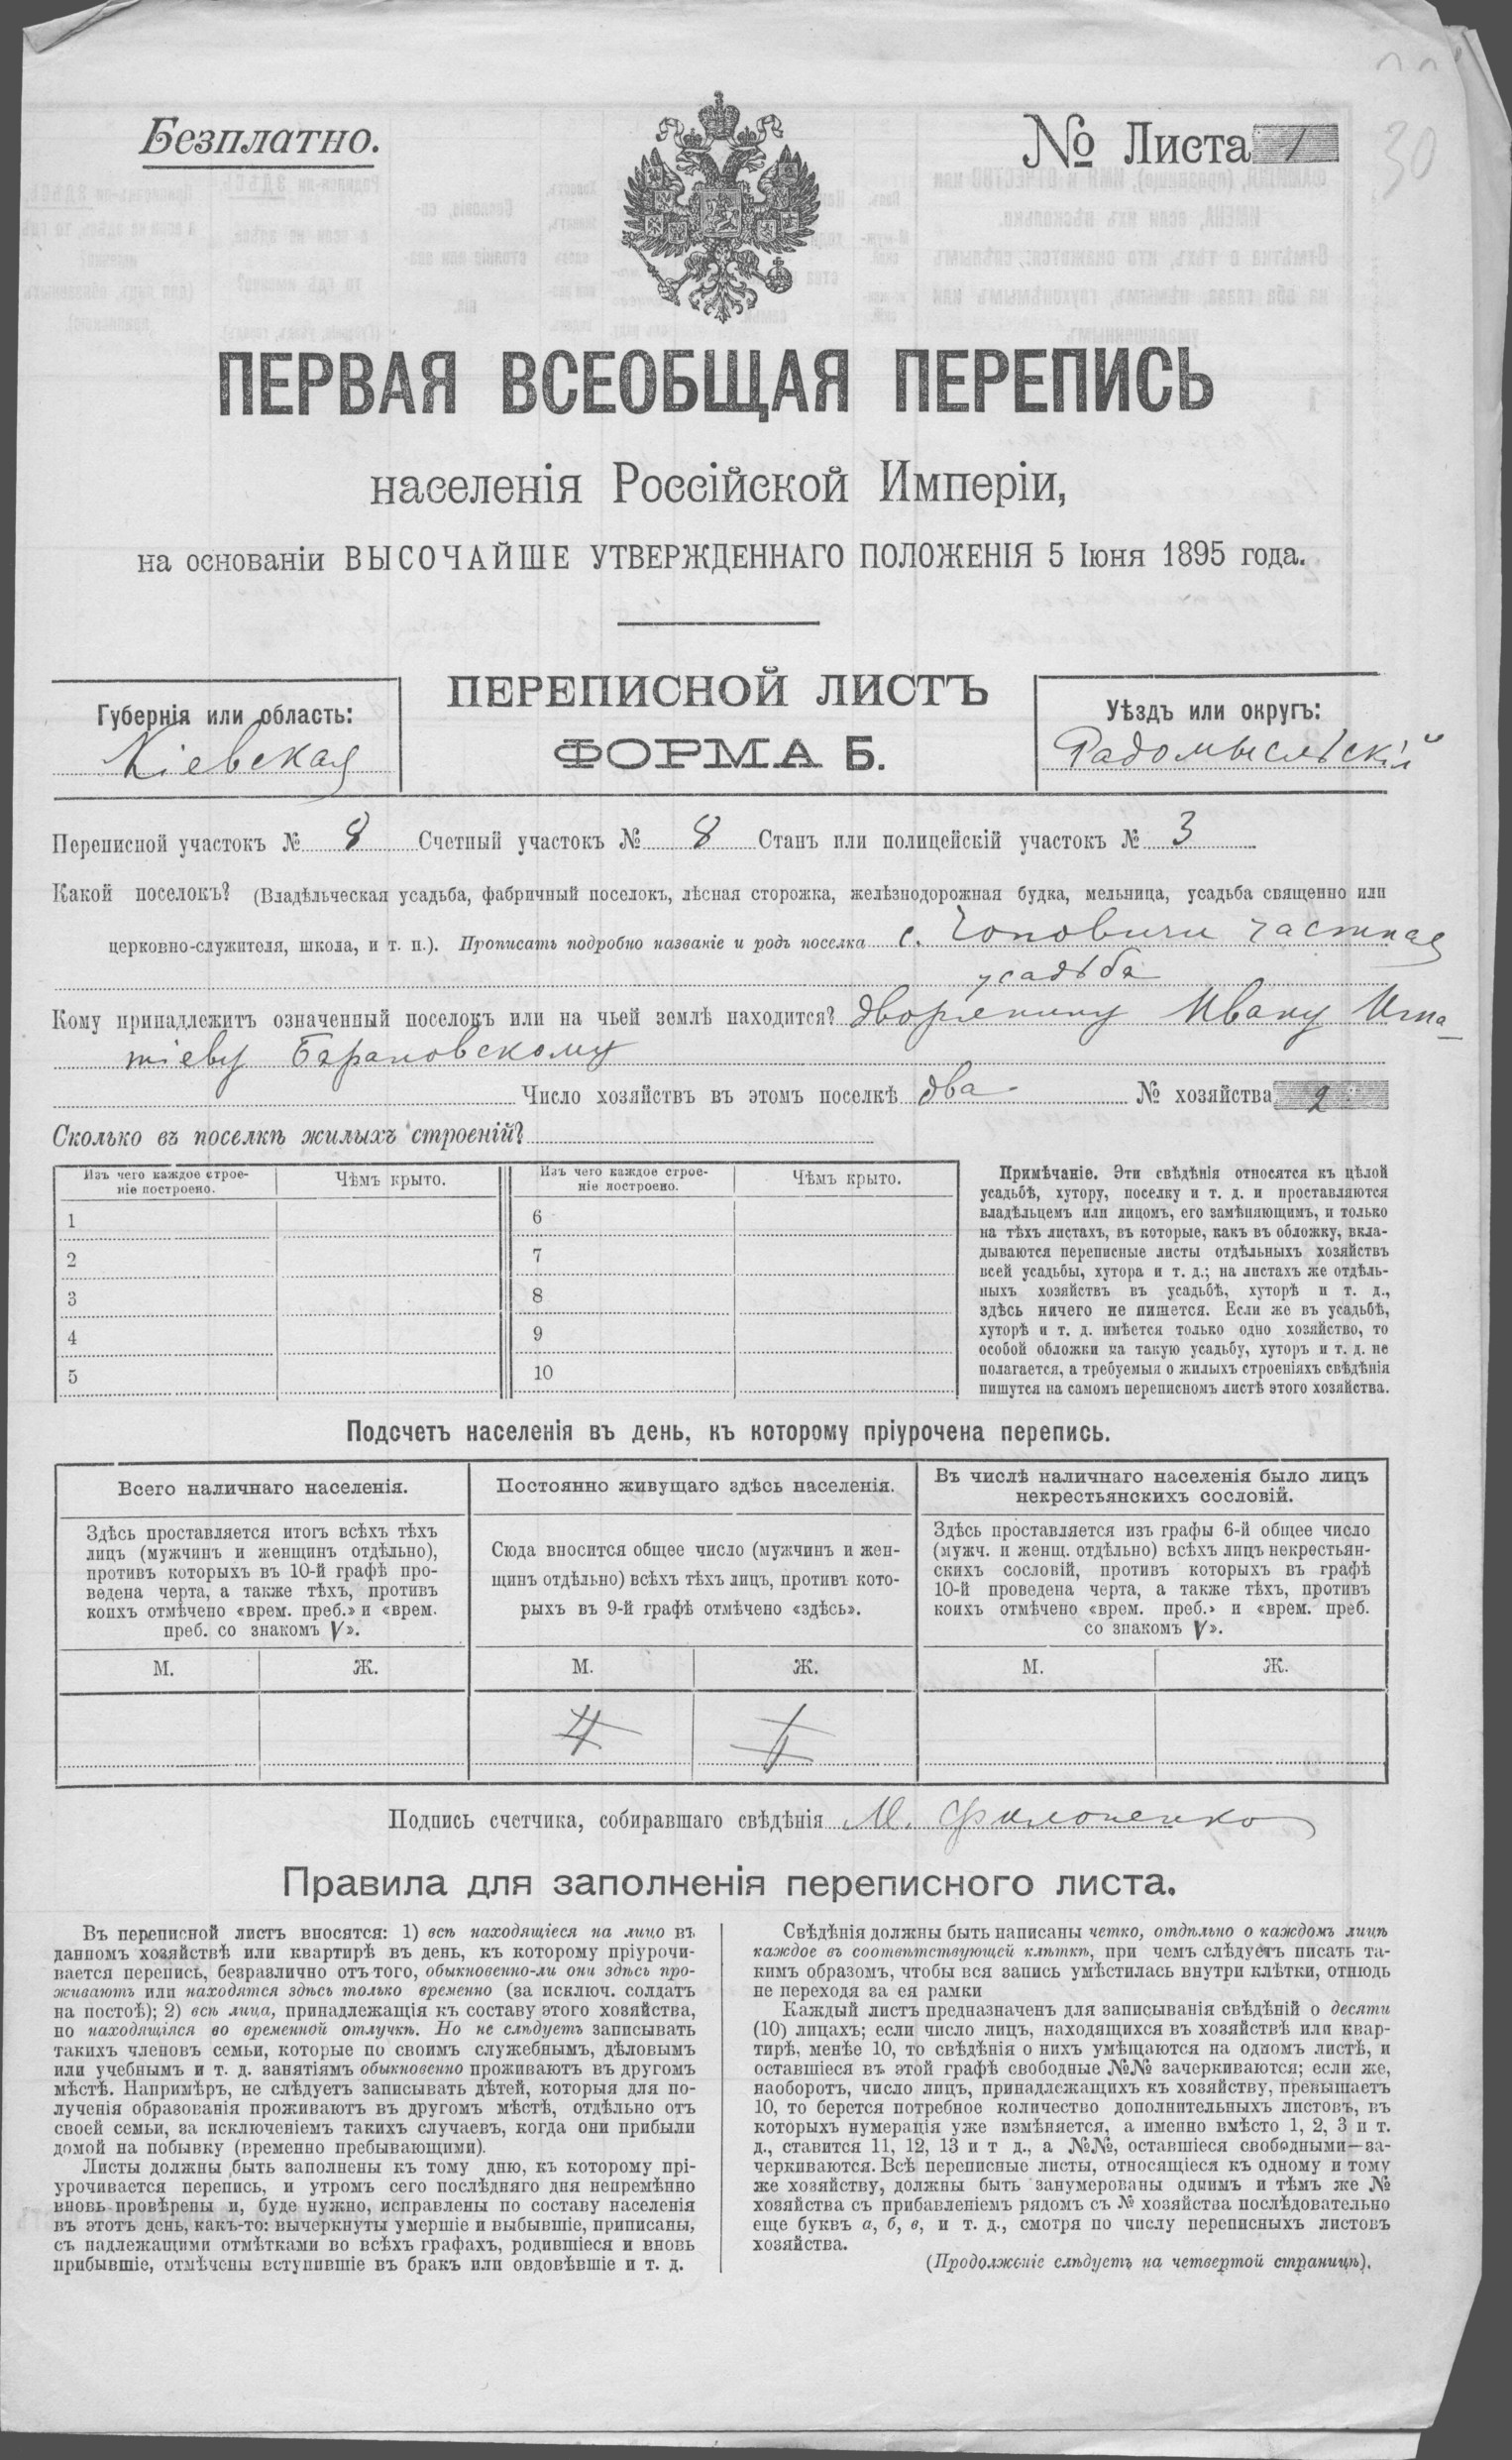 Безплатно.
№ Листа 1
30
ПЕРВАЯ ВСЕОБЩАЯ ПЕРЕПИСЬ
населенія Россійской Имперіи,
на основаніи ВЫСОЧАЙШЕ УТВЕРЖДЕННАГО ПОЛОЖЕНІЯ 5 Іюня 1895 года.
ПЕРЕПИСНОЙ ЛИСТЪ
ФОРМА Б.
Губернія или область:
Кіевская
Уѣздъ или округъ:
Радомысльскій
Переписной участокъ № 8 Счетный участокъ № 8 Станъ или полицейскій участокъ № 3
Какой поселокъ? (Владѣльческая усадьба, фабричный поселокъ, лѣсная сторожка, желѣзнодорожная будка, мельница, усадьба священно или
церковно-служителя, школа, и т. п.). Прописать подробно названіе и родъ поселка с. Чоповичи частная
усадьба
Кому принадлежитъ означенный поселокъ или на чьей землѣ находится? дворянину Ивану Игна
тіеву Барановскому
Число хозяйствъ въ этомъ поселкѣ два № хозяйства 2
Сколько въ поселкѣ жилыхъ строеній?
Изъ чего каждое строе-
ніе построено.
Чѣмъ крыто.
Изъ чего каждое строе-
ніе построено.
Чѣмъ крыто.
1 6
2 7
3 8
4 9
5 10
Примѣчаніе. Эти свѣдѣнія относятся къ цѣлой
усадьбѣ, хутору, поселку и т. д. и проставляются
владѣльцемъ или лицомъ, его замѣняющимъ, и только
на тѣхъ листахъ, въ которые, какъ въ обложку, вкла-
дываются переписные листы отдѣльныхъ хозяйствъ
всей усадьбы, хутора и т. д.; на листахъ же отдѣль-
ныхъ хозяйствъ въ усадьбѣ, хуторѣ и т. д.,
здѣсь ничего не пишется. Если же въ усадьбѣ,
хуторѣ и т. д. имѣется только одно хозяйство, то
особой обложки на такую усадьбу, хуторъ и т. д. не
полагается, а требуемыя о жилыхъ строеніяхъ свѣдѣнія
пишутся на самомъ переписномъ листѣ этого хозяйства.
Подсчетъ населенія въ день, къ которому пріурочена перепись.
Всего наличнаго населенія.
Здѣсь проставляется итогъ всѣхъ тѣхъ
лицъ (мужчинъ и женщинъ отдѣльно),
противъ которыхъ въ 10-й графѣ про-
ведена черта, а также тѣхъ, противъ
коихъ отмѣчено «врем. преб.» и «врем.
преб. со знакомъ V».
М. Ж.
Постоянно живущаго здѣсь населенія.
Сюда вносится общее число (мужчинъ и жен-
щинъ отдѣльно) всѣхъ тѣхъ лицъ, противъ кото-
рыхъ въ 9-й графѣ отмѣчено «здѣсь».
М. Ж.
Въ числѣ наличнаго населенія было лицъ
некрестьянскихъ сословій.
Здѣсь проставляется изъ графы 6-й общее число
(мужч. и женщ. отдѣльно) всѣхъ лицъ некрестьян-
скихъ сословій, противъ которыхъ въ графѣ
10-й проведена черта, а также тѣхъ, противъ
коихъ отмѣчено «врем. преб.» и «врем. преб.
со знакомъ V».
М. Ж.
Подпись счетчика, собиравшаго свѣдѣнія М. Филоненко
Правила для заполненія переписного листа.
Въ переписной листъ вносятся: 1) всѣ находящіеся на лицо въ
данномъ хозяйствѣ или квартирѣ въ день, къ которому пріурочи-
вается перепись, безразлично отъ того, обыкновенно-ли они здѣсь про-
живаютъ или находятся здѣсь только временно (за исключ. солдатъ
на постоѣ); 2) всѣ лица, принадлежащія къ составу этого хозяйства,
но находящіяся во временной отлучкѣ. Но не слѣдуетъ записывать
такихъ членовъ семьи, которые по своимъ служебнымъ, дѣловымъ
или учебнымъ и т. д. занятіямъ обыкновенно проживаютъ въ другомъ
мѣстѣ. Напримѣръ, не слѣдуетъ записывать дѣтей, которыя для по-
лученія образованія проживаютъ въ другомъ мѣстѣ, отдѣльно отъ
своей семьи, за исключеніемъ такихъ случаевъ, когда они прибыли
домой на побывку (временно пребывающими).
Листы должны быть заполнены къ тому дню, къ которому прі-
урочивается перепись, и утромъ сего послѣдняго дня непремѣнно
вновь провѣрены и, буде нужно, исправлены по составу населенія
въ этотъ день, какъ-то: вычеркнуты умершіе и выбывшіе, приписаны,
съ надлежащими отмѣтками во всѣхъ графахъ, родившіеся и вновь
прибывшіе, отмѣчены вступившіе въ бракъ или овдовѣвшіе и т. д.
Свѣдѣнія должны быть написаны четко, отдѣльно о каждомъ лицѣ
каждое въ соотвѣтствующей клѣткѣ, при чемъ слѣдуетъ писать та-
кимъ образомъ, чтобы вся запись умѣстилась внутри клѣтки, отнюдь
не переходя за ея рамки
Каждый листъ предназначенъ для записыванія свѣдѣній о десяти
(10) лицахъ; если число лицъ, находящихся въ хозяйствѣ или квар-
тирѣ, менѣе 10, то свѣдѣнія о нихъ умѣщаются на одномъ листѣ, и
оставшіеся въ этой графѣ свободные №№ зачеркиваются; если же,
наоборотъ, число лицъ, принадлежащихъ къ хозяйству, превышаетъ
10, то берется потребное количество дополнительныхъ листовъ, въ
которыхъ нумерація уже измѣняется, а именно вмѣсто 1, 2, 3 и т.
д., ставится 11, 12, 13 и т д., а №№, оставшіеся свободными—за-
черкиваются. Всѣ переписные листы, относящіеся къ одному и тому
же хозяйству, должны быть занумерованы однимъ и тѣмъ же №
хозяйства съ прибавленіемъ рядомъ съ № хозяйства послѣдовательно
еще буквъ а, б, в, и т. д., смотря по числу переписныхъ листовъ
хозяйства.
(Продолженіе слѣдуетъ на четвертой страницѣ).